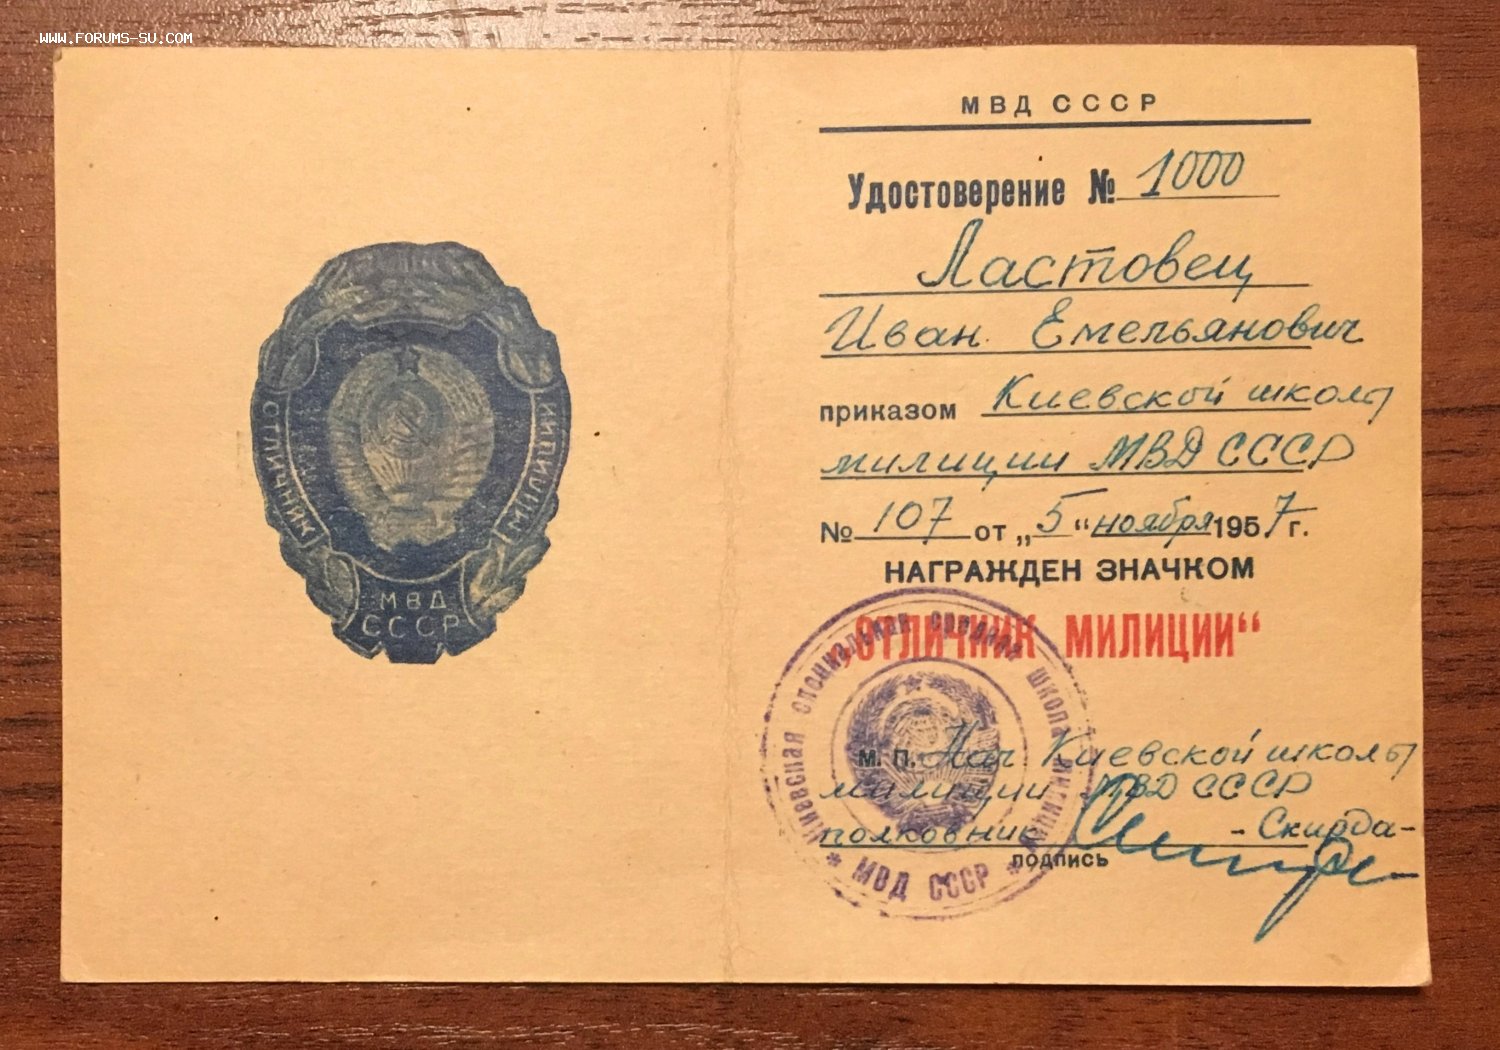 www.forums-su.com
ОТЛИЧНИК
МИЛИЦИИ
МВД
СССР
МВД СССР
Удостоверение № 1000
Ластовец
Иван Емельянович
приказом Киевской школы
милиции МВД СССР
№ 107 от „5“ ноября 1957 г.
НАГРАЖДЕН ЗНАЧКОМ
„ОТЛИЧНИК МИЛИЦИИ“
Киевская специальная средняя школа милиции * МВД СССР *
М. П. Нач. Киевской школы
милиции МВД СССР
полковник - Скирда -
подпись